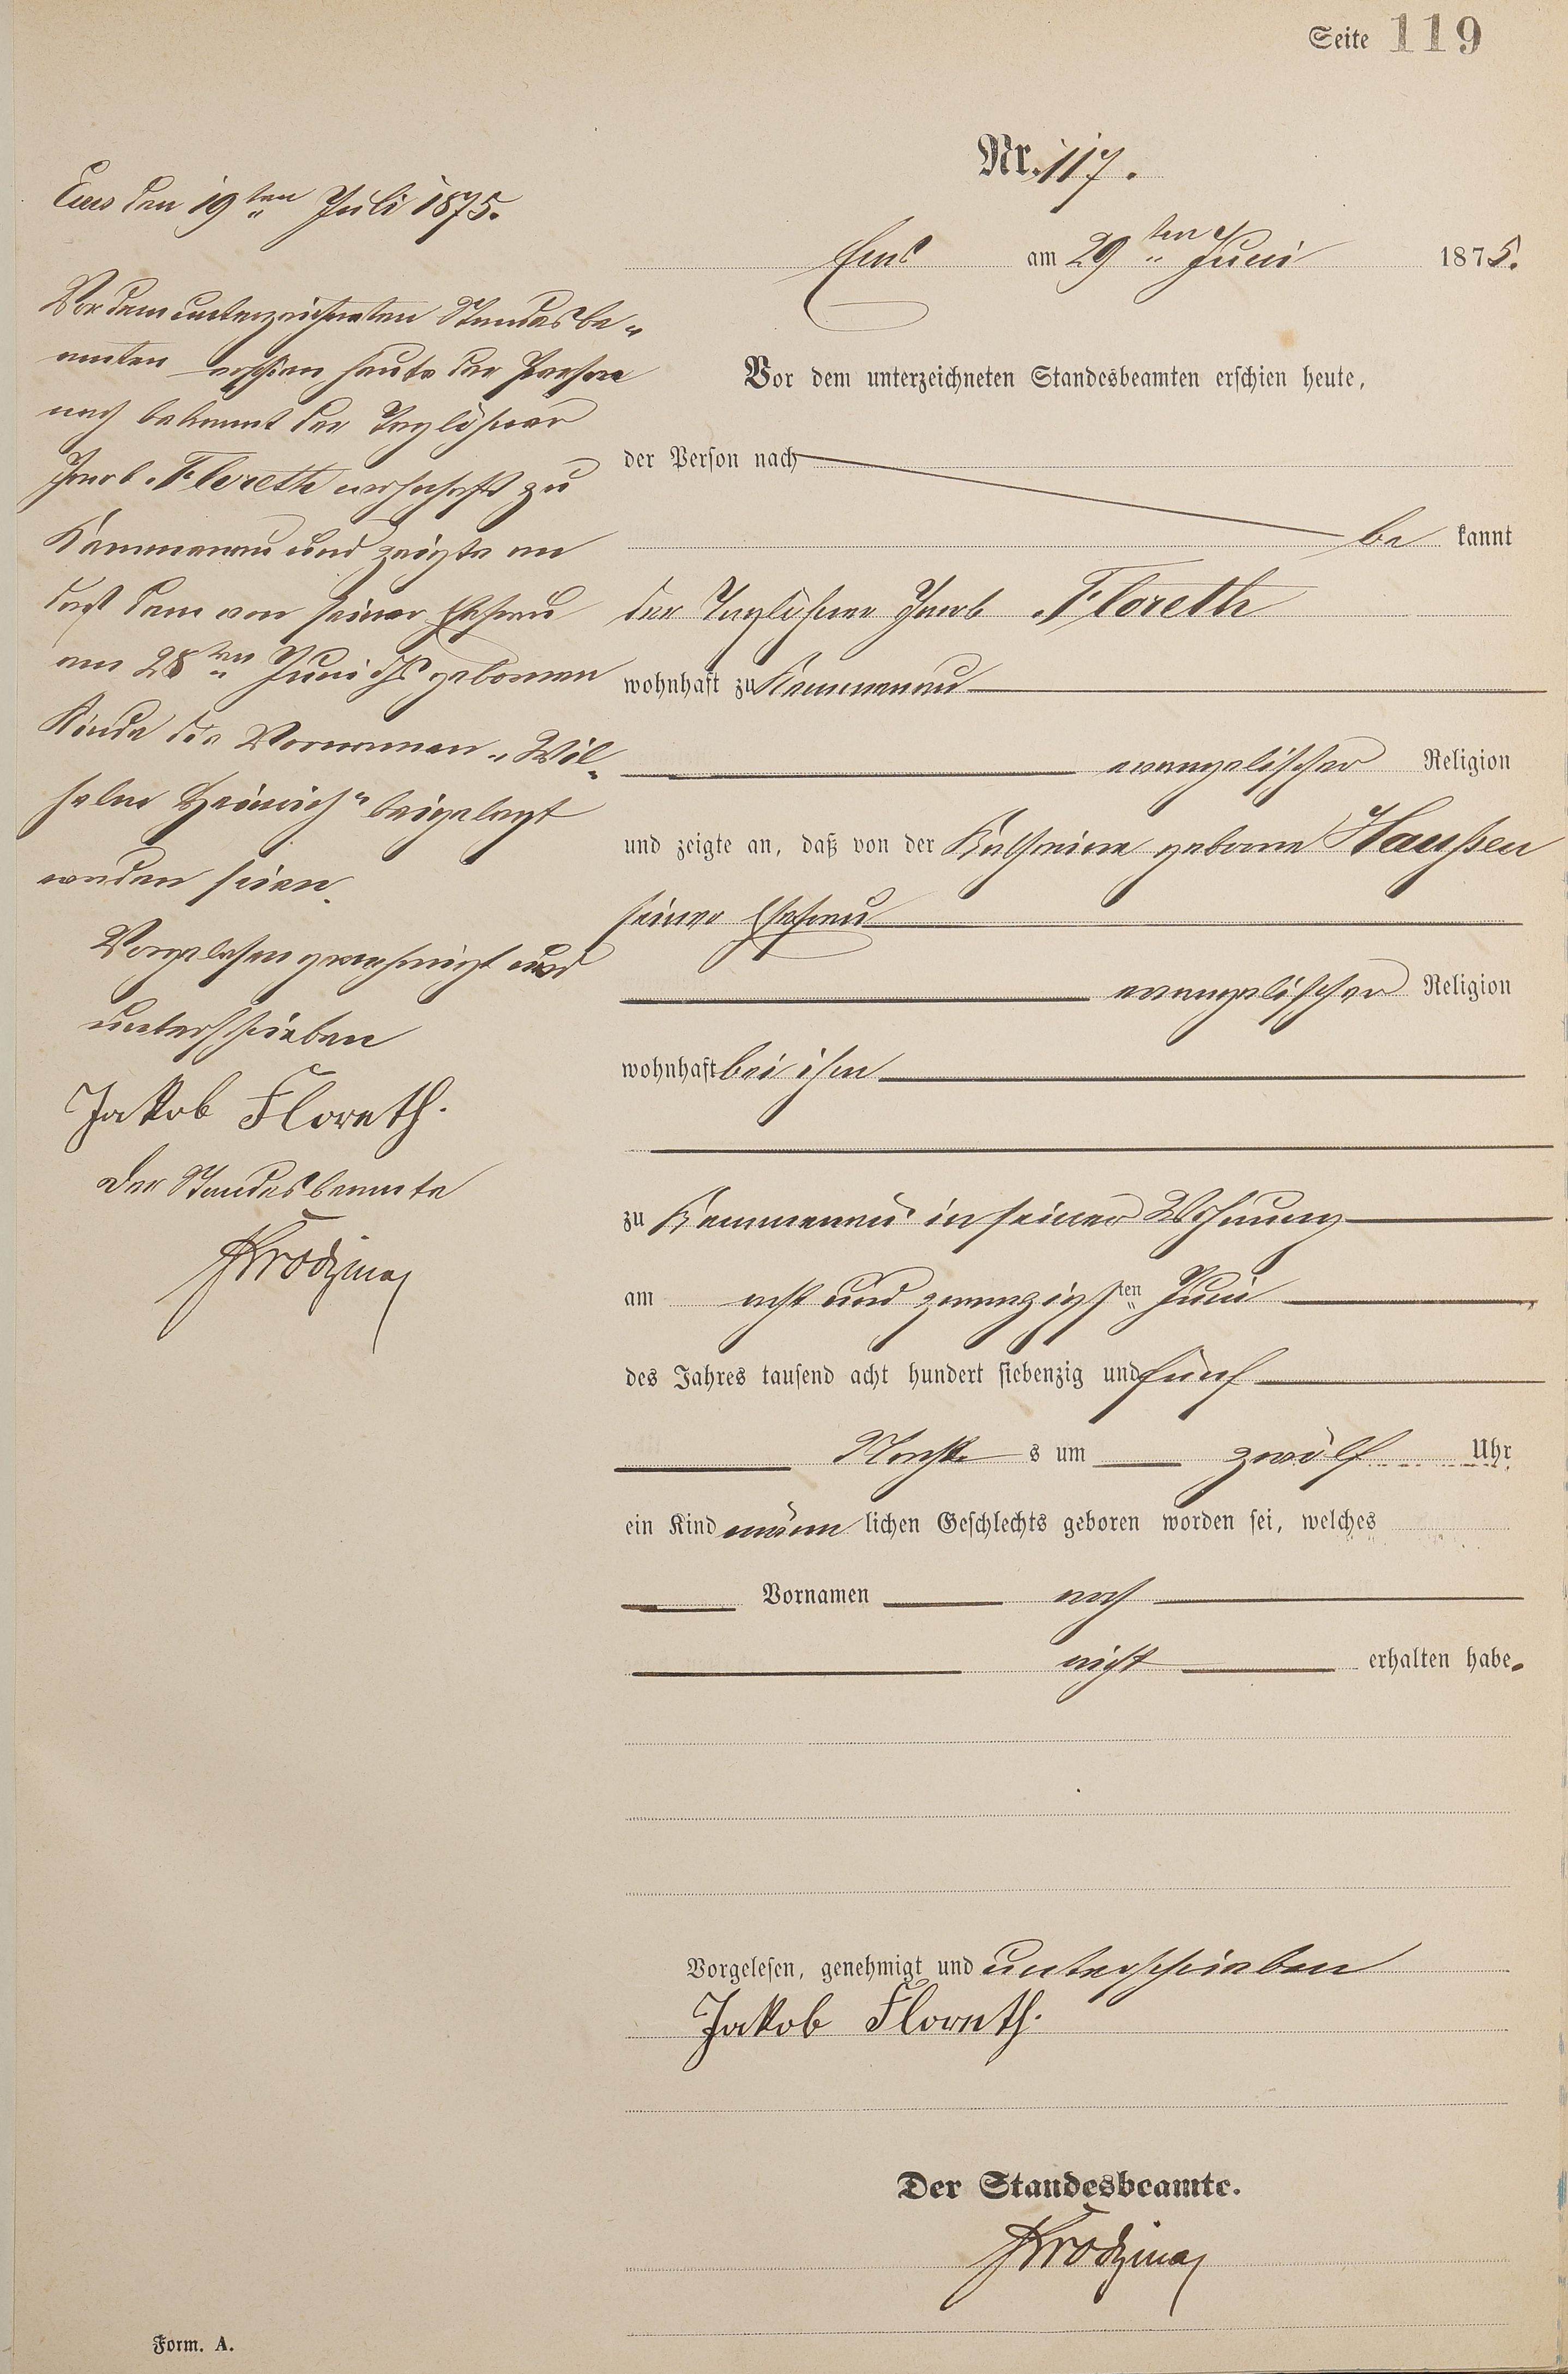 Seite 119
Nr. 117.
Ems am 29ten Juni 1875.
Vor dem unterzeichneten Standesbeamten erschien heute,
der Person nach
be kannt
der Taglöhner Jacob Floreth
wohnhaft zu Kemmenau
evangelischer Religion
und zeigte an, daß von der Kathrine geborne Haußen
seiner Ehefrau
evangelischer Religion
wohnhaft bei ihm
zu Kemmenau in seiner Wohnung
am acht und zwanzigsten Juni
des Jahres tausend acht hundert siebenzig und fünf
Nachts um zwölf Uhr
ein Kind männ lichen Geschlechts geboren worden sei, welches
Vornamen noch
nicht erhalten habe.
Vorgelesen, genehmigt und unterschrieben
Jakob Floreth.
Der Standesbeamte.
Ems den 19ten Juli 1875.
Vor dem unterzeichneten Standesbe-
amten erschien heute der Person
nach bekannt der Taglöhner
Jacob Floreth wohnhaft zu
Kemmenau und zeigte an
daß dem von seiner Ehefrau
am 28ten Juni geborenen
Kinde die Vornamen „Wil-
helm Heinrich" beigelegt
worden seien.
Vorgelesen genehmigt und
unterschrieben
Jakob Floreth.
Der Standesbeamte
Form. A.